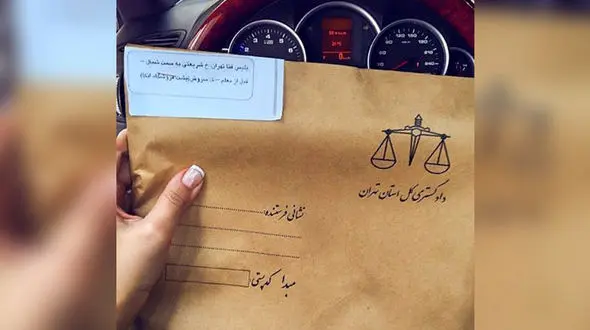 پلیس فتا تهران خ شریعتی به سمت شمال -
قبل از معلم -
دادگستری کل استان تهران
نشانی فرستنده:
مبدا کدپستی: